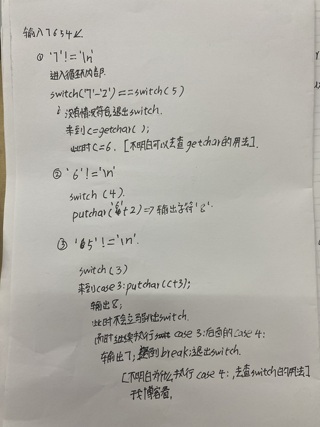 输入7654↙
① '7'!='\n'
进入循环内部.
switch('7'-'2')==switch(5)
∵没有情况符合,退出switch.
来到c=getchar();
此时C=6. [不明白可以去查getchar的用法].
② '6'!='\n'
switch(4).
putchar('6'+2)=>输出字符'8'.
③ '5'!='\n'.
switch(3)
来到case 3:putchar(c+3);
输出8;
此时不会立马退出switch.
而是继续执行 case 3:后面的case 4:
输出7; 遇到break;退出switch.
[不明白为什么执行case 4:,去查switch的用法]
找博客看.